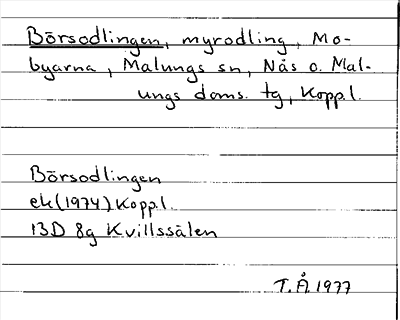 Börsodlingen, myrodling, Mo-
byarna, Malungs sn, Nås o. Mal-
ungs doms. tg, Koppl.
Börsodlingen
ek (1974) Koppl.
13D 8g Kvillssälen
T.Å. 1977